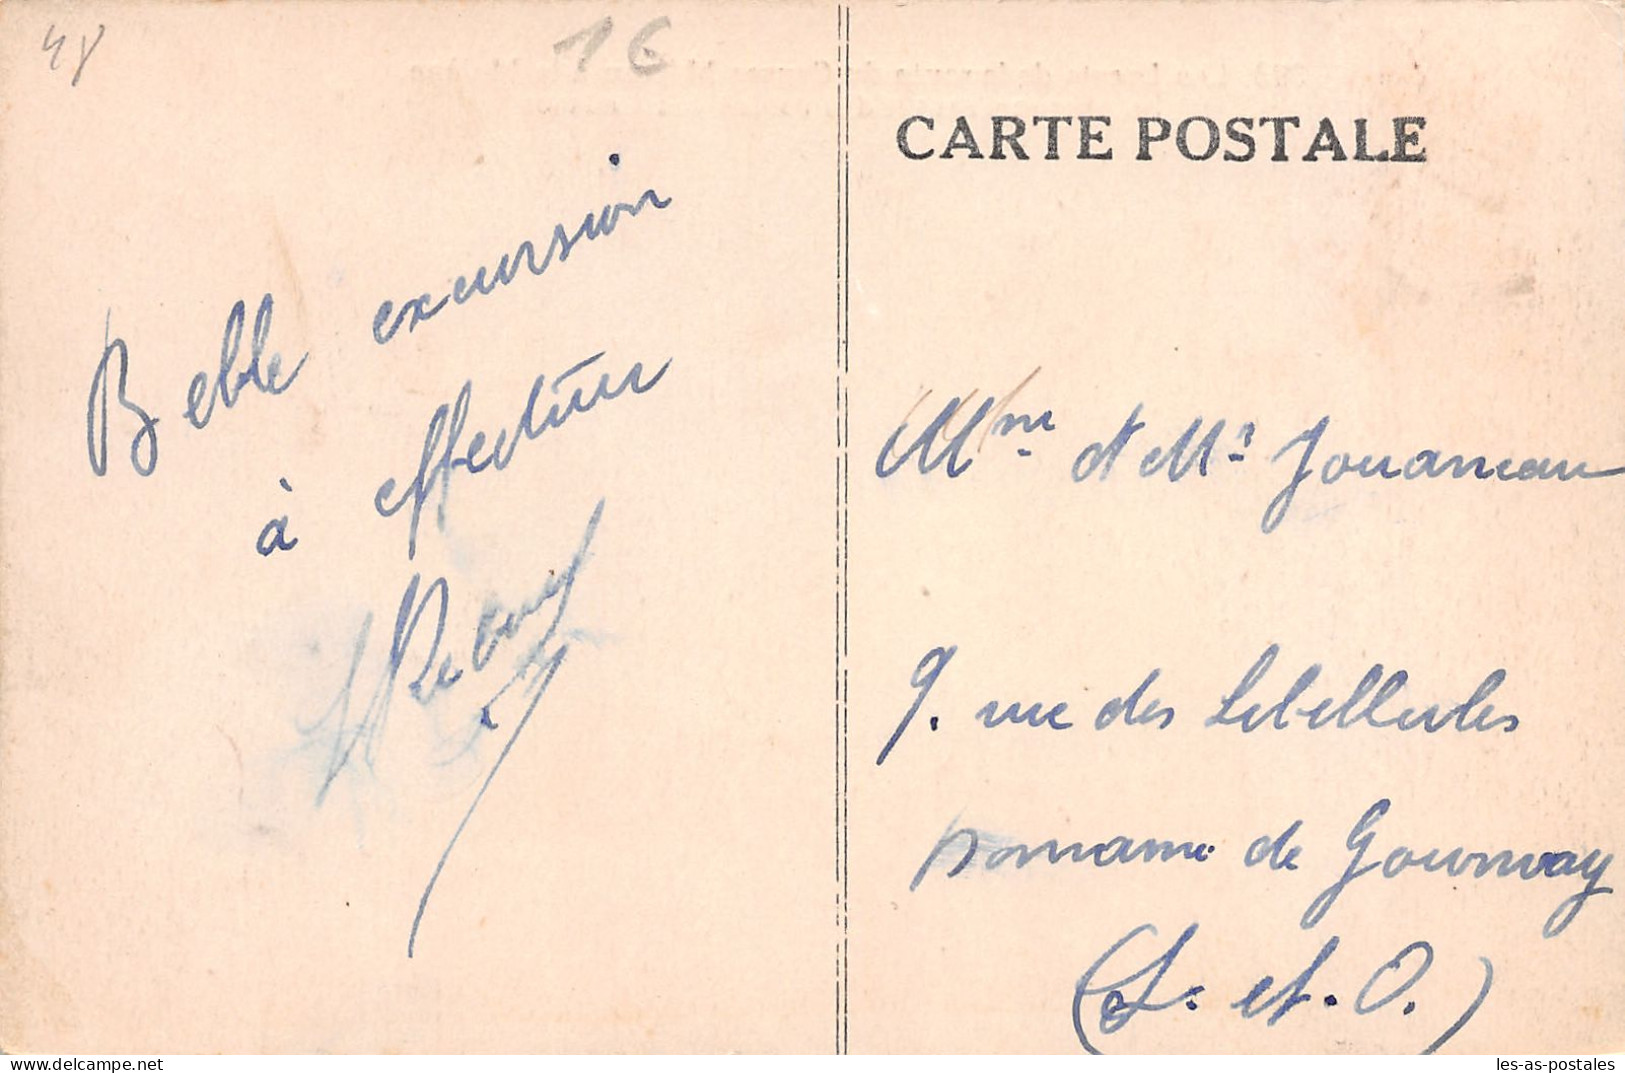 48
1€
CARTE POSTALE
Belle excursion
à effectuer
Mme et Mr Jouaneau
9. rue des Libellules
Domaine de Gournay
(S. et. O.)
www.delcampe.net
les-as-postales